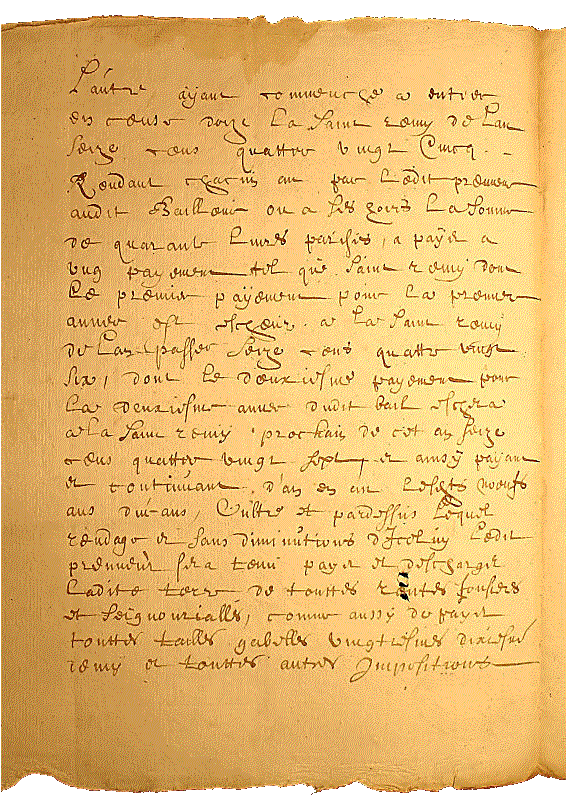 L'autre ayant commenche a entrer
en ceuse doize la Saint remy de l'an
Seize cens quattre vingt Cincq
Rendant chacun an par Ledit preneur
audit Bailleur ou a ses hoirs la somme
de quarante livres parisis, a payer a
ung payement tel que Saint remy dont
Le premier payement pour la premier
annee est escheue a la Saint remy
de l'an passee seize cens quattre vingt
six, dont le deuxiesme payement pour
la deuxiesme annee dudit bail eschera
a la Saint remy prochain de cet an seize
cens quattre vingt sept, et ainsy payant
et continuant d'an en an lesdits noeufs
ans durans, Oultre et pardessus lequel
rendage et sans diminutions d'Icelluy Ledit
prenneur sera tenu payer et descharger
Ladite terre de touttes rentes fonsieres
et Seignourialles, comme aussy de payer
touttes tailles gabelles vingtiesmes dixiesme
remy et touttes autres Impositions